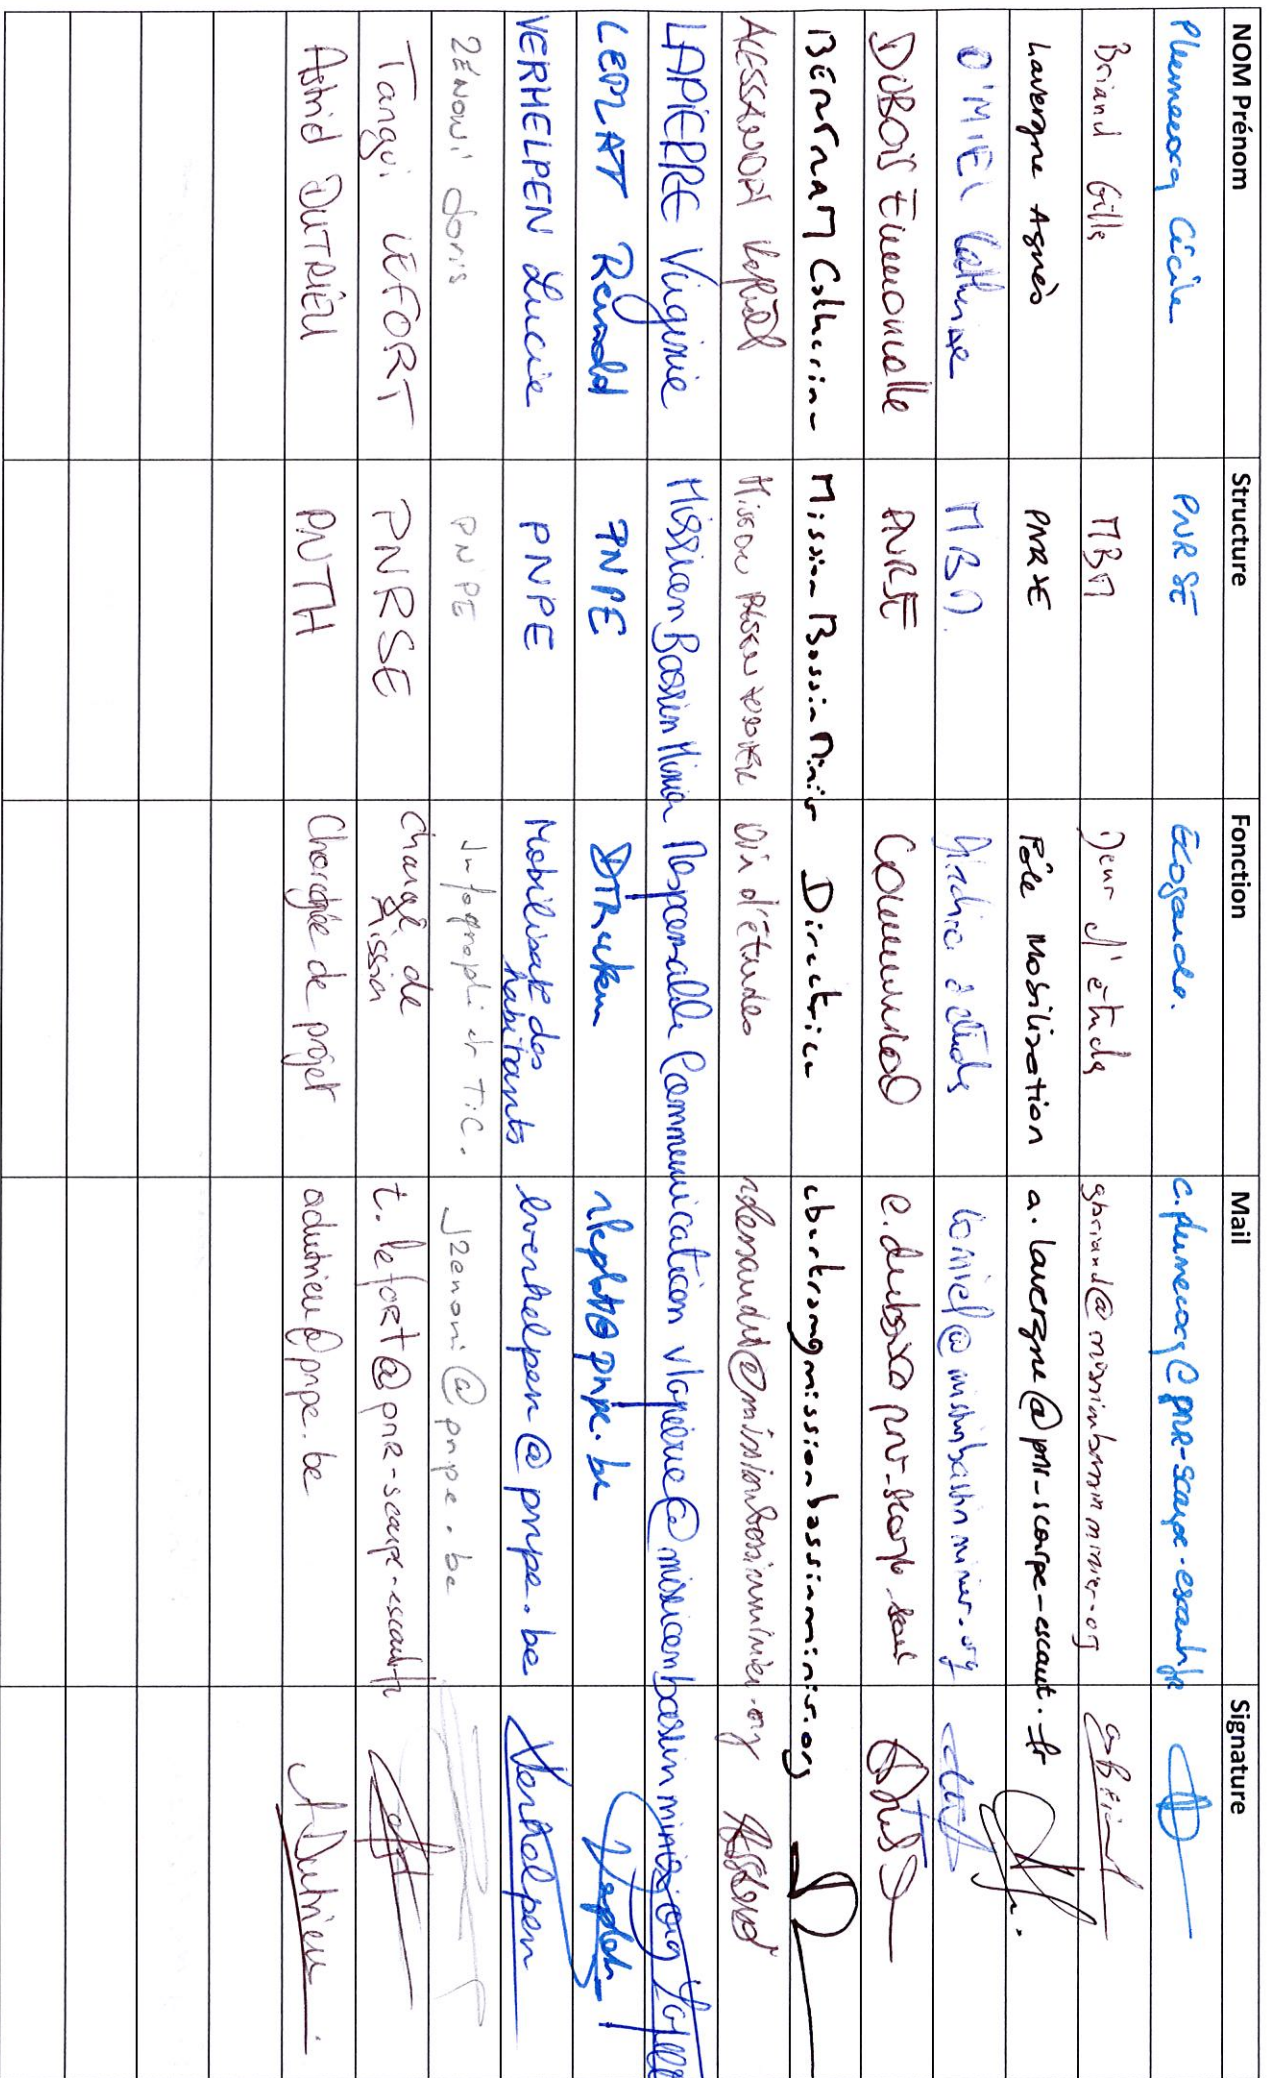 NOM Prénom Structure Fonction Mail Signature
Plumecocq Cécile PNRSE Ecogarde. c.plumecocq@pnr-scarpe-escaut.fr
Briand Gilles MBM d'études gbriand@missionbassinminier.org
Lavergne Agnès PNRSE Pôle Mobilisation a.lavergne@pnr-scarpe-escaut.fr
O'MIEL Catherine MBM. comiel@missionbassinminier.org
DUBOIS Emmanuelle PNRSE e.dubois@pnr-scarpe-
BERTRAM Catherine Mission Bassin Minier Directrice cbertram@missionbassinminier.org
ALESSANDRI Mission Bassin Minier Dir d'études @missionbassinminier.org
LAPIERRE Virginie Mission Bassin Minier Responsable Communication vlapierre@missionbassinminier.org
LEPLAT Reinold PNPE Directeur rleplat@pnpe.be
VERHELPEN Lucie PNPE Mobilisat° des lverhelpen@pnpe.be Verhelpen
habitants
ZENONI PNPE Infographie et TIC. jzenoni@pnpe.be
Tangui LEFORT PNRSE Chargé de t.lefort@pnr-scarpe-escaut.fr
Mission
Astrid DUTRIEU PNTH Chargée de projet adutrieu@pnpe.be ADutrieu